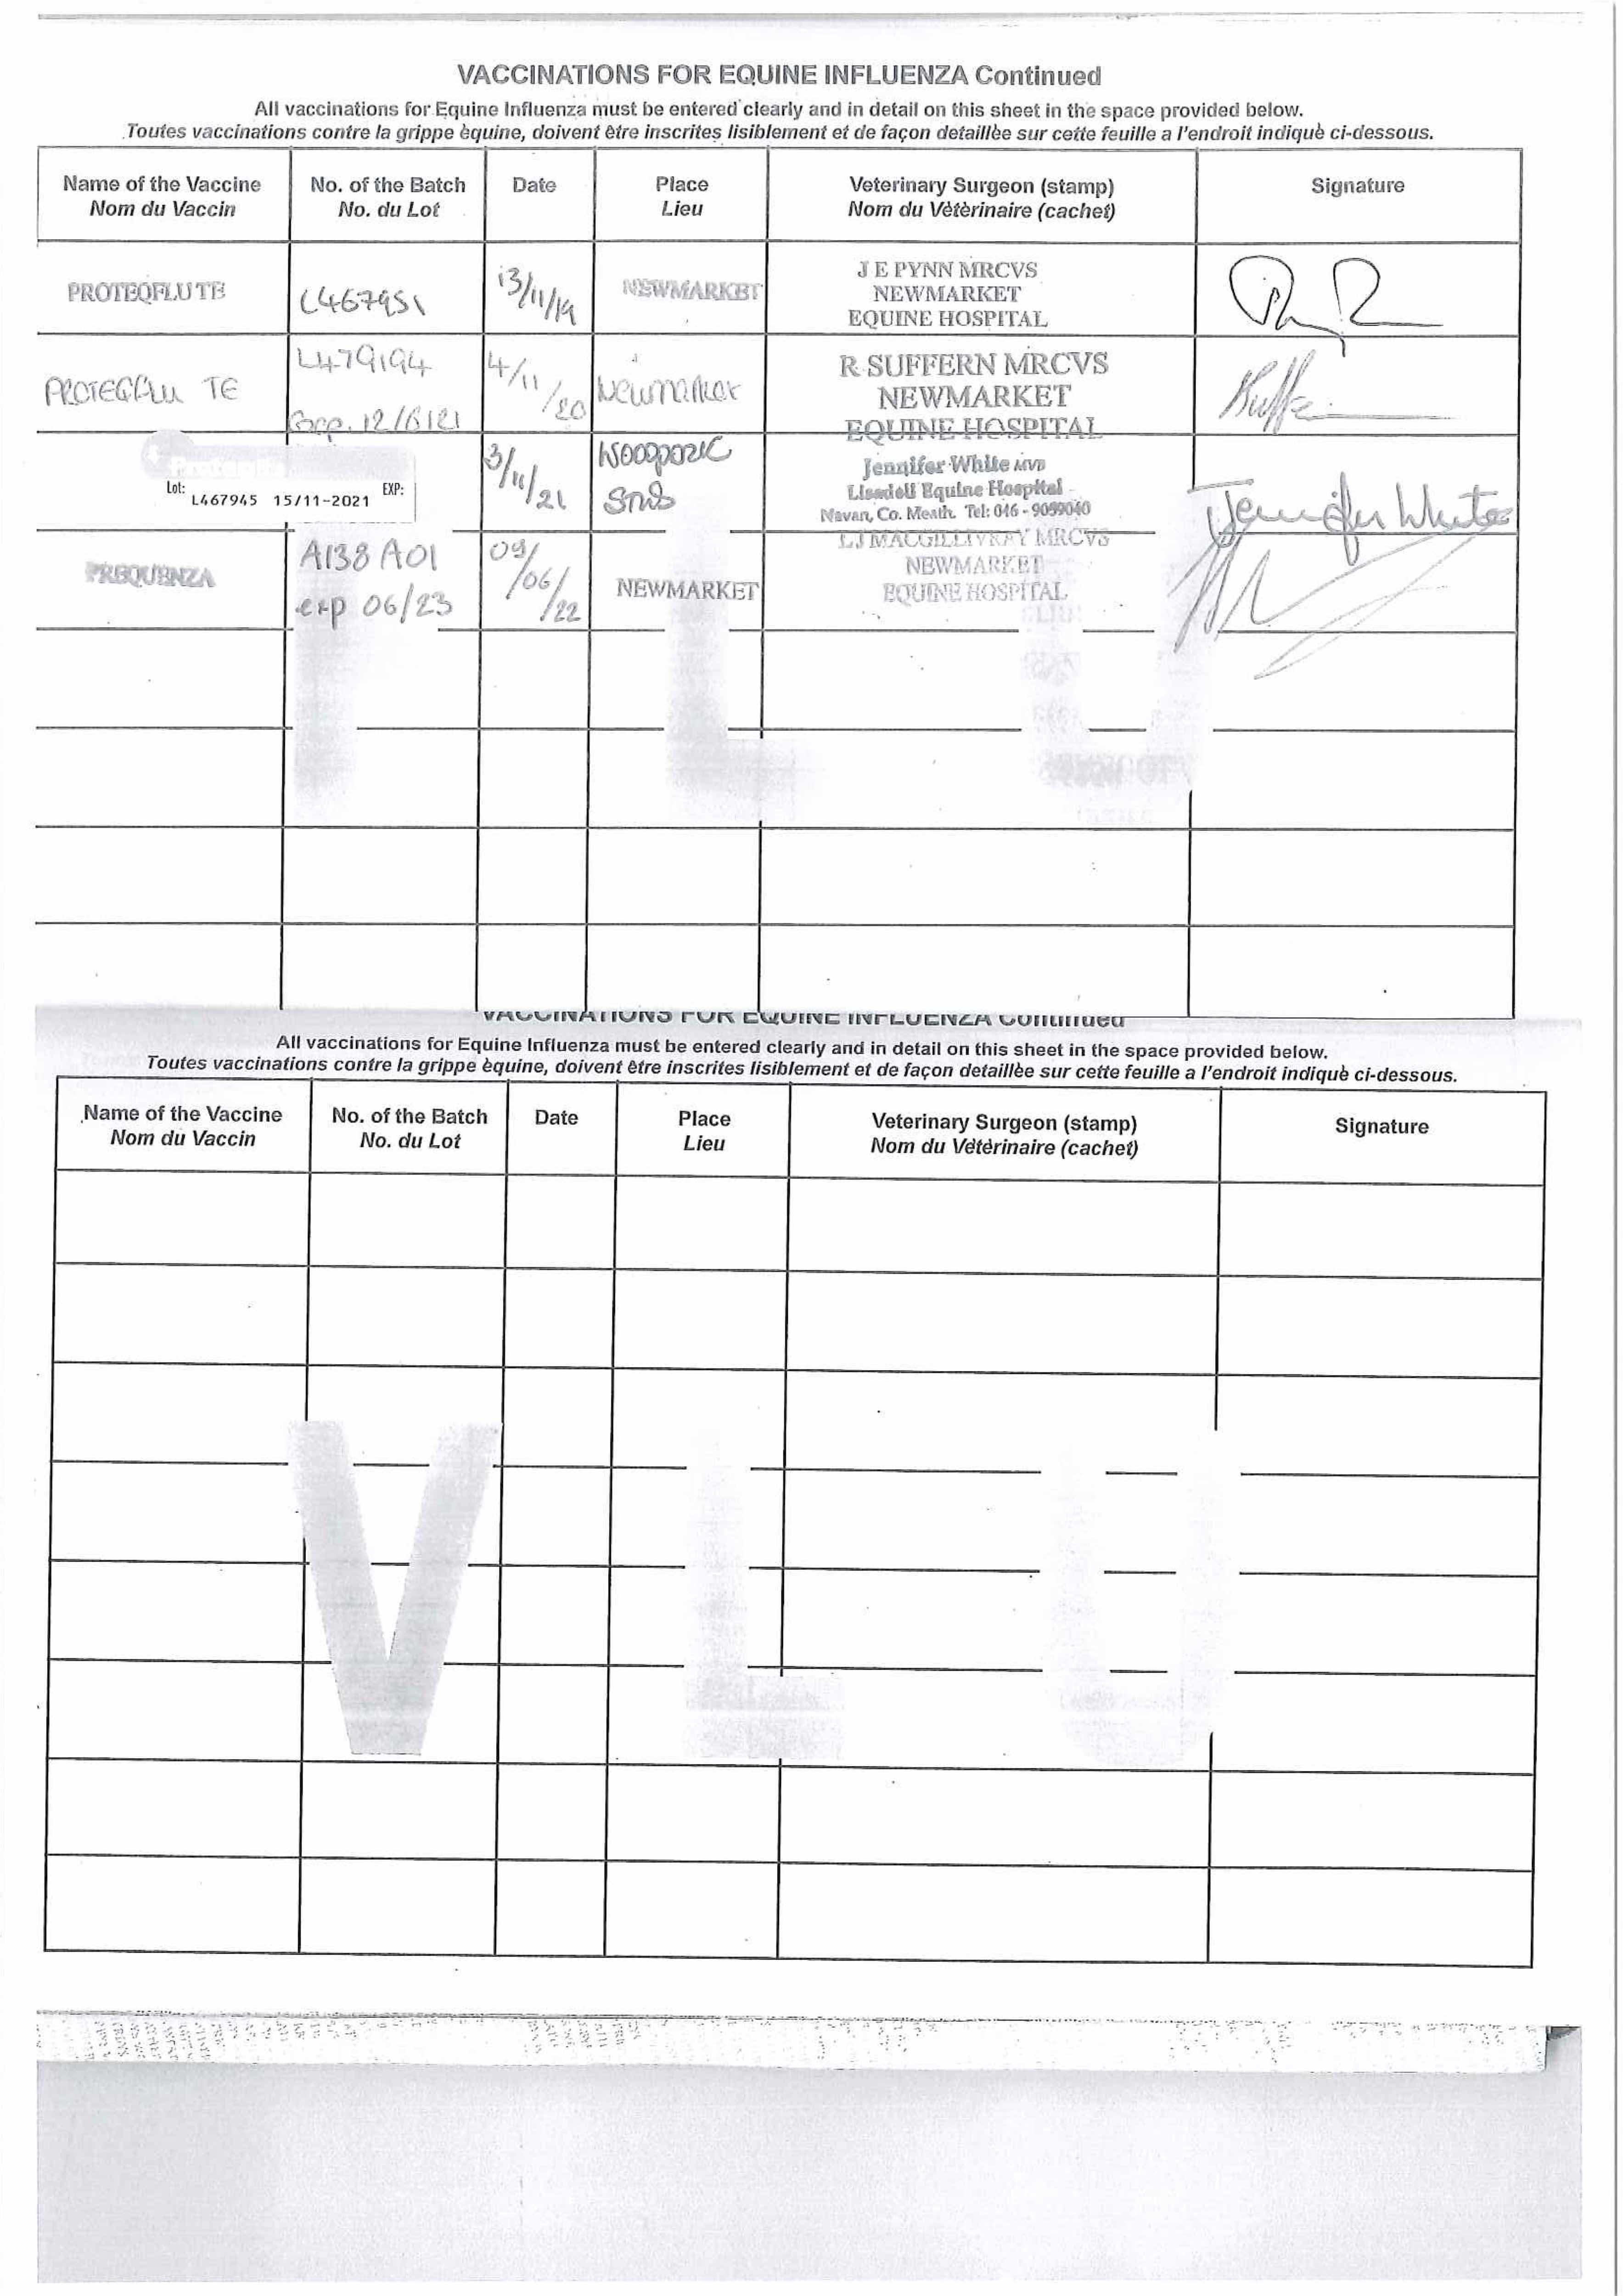 VACCINATIONS FOR EQUINE INFLUENZA Continued
All vaccinations for Equine Influenza must be entered clearly and in detail on this sheet in the space provided below.
Toutes vaccinations contre la grippe èquine, doivent être inscrites lisiblement et de façon detaillèe sur cette feuille a l'endroit indiquè ci-dessous.
Name of the Vaccine No. of the Batch Date Place Veterinary Surgeon (stamp) Signature
Nom du Vaccin No. du Lot Lieu Nom du Vètèrinaire (cachet)
J E PYNN MRCVS
PROTEQFLU TE L467951 13/11/19 NEWMARKET NEWMARKET
EQUINE HOSPITAL
L479194 4/11/20 R SUFFERN MRCVS
PROTEQFLU TE Newmarket NEWMARKET
Exp. 12/6/21 EQUINE HOSPITAL
3/11/21 Woodpark Jennifer White MVB
Lot: L467945 15/11-2021 EXP: Stud Lisadell Equine Hospital
Navan, Co. Meath. Tel: 046 - 9059040 Jennifer White
A138 A01 09/06/22 L J MACGILLIVRAY MRCVS
PREQUENZA NEWMARKET NEWMARKET
exp 06/23 EQUINE HOSPITAL
VACCINATIONS FOR EQUINE INFLUENZA Continued
All vaccinations for Equine Influenza must be entered clearly and in detail on this sheet in the space provided below.
Toutes vaccinations contre la grippe èquine, doivent être inscrites lisiblement et de façon detaillèe sur cette feuille a l'endroit indiquè ci-dessous.
Name of the Vaccine No. of the Batch Date Place Veterinary Surgeon (stamp) Signature
Nom du Vaccin No. du Lot Lieu Nom du Vètèrinaire (cachet)